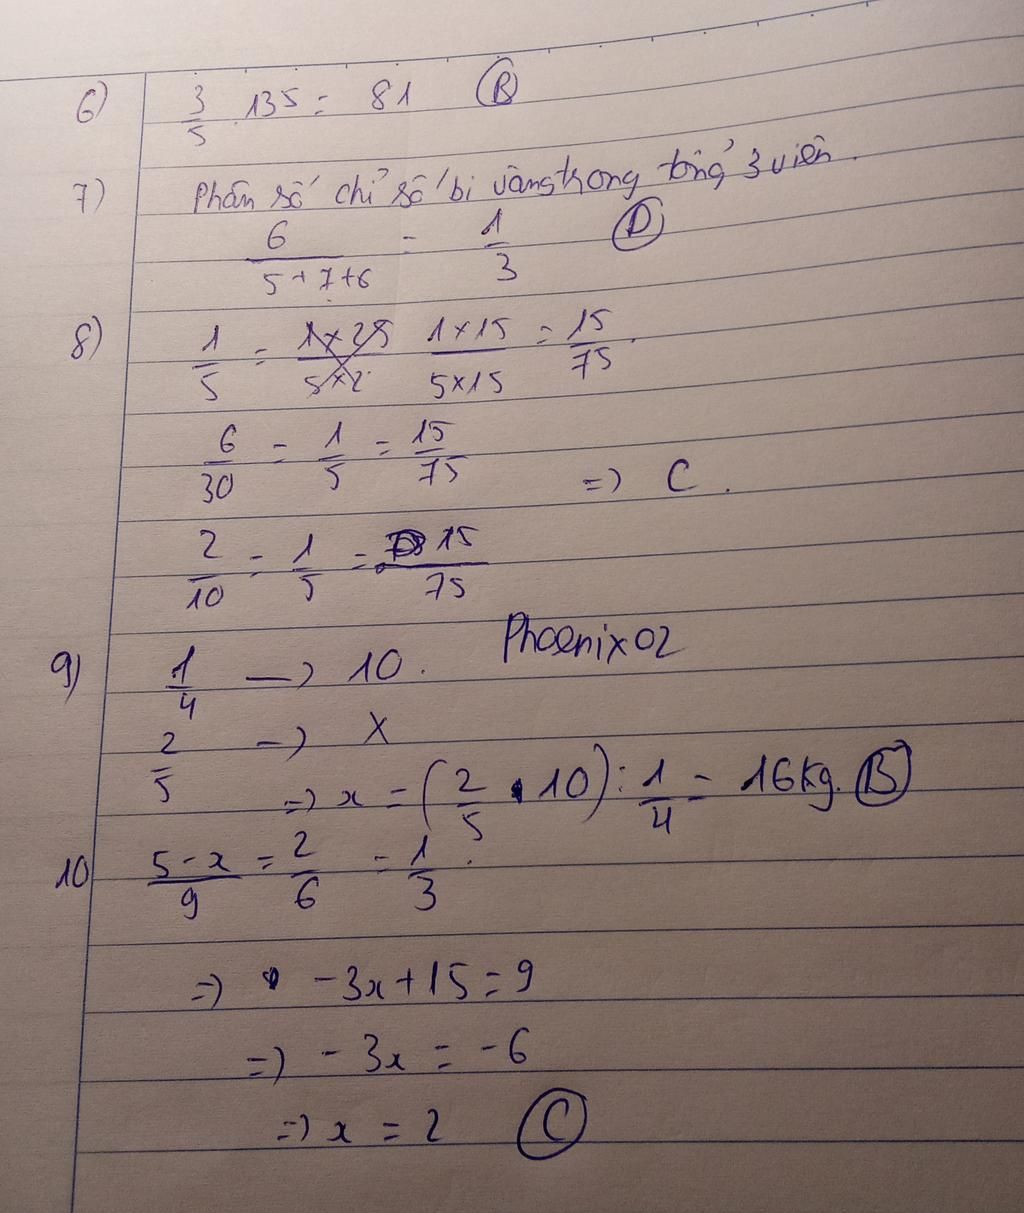 6) 3/5 . 135 = 81 (B)
7) Phân số chỉ số bi vàng trong tổng 3 viên.
6/(5+7+6) = 1/3 (D)
8) 1/5 = 1×25/5×2 1×15/5×15 = 15/75.
6/30 = 1/5 = 15/75
=> C.
2/10 = 1/5 = 15/75
Phoenix02
9) 1/4 —> 10.
2/5 —> X
=> x = (2/5 . 10) : 1/4 = 16kg. (B)
10) (5-x)/9 = 2/6 = 1/3.
=> -3x+15=9
=> -3x = -6
=> x = 2 (C)